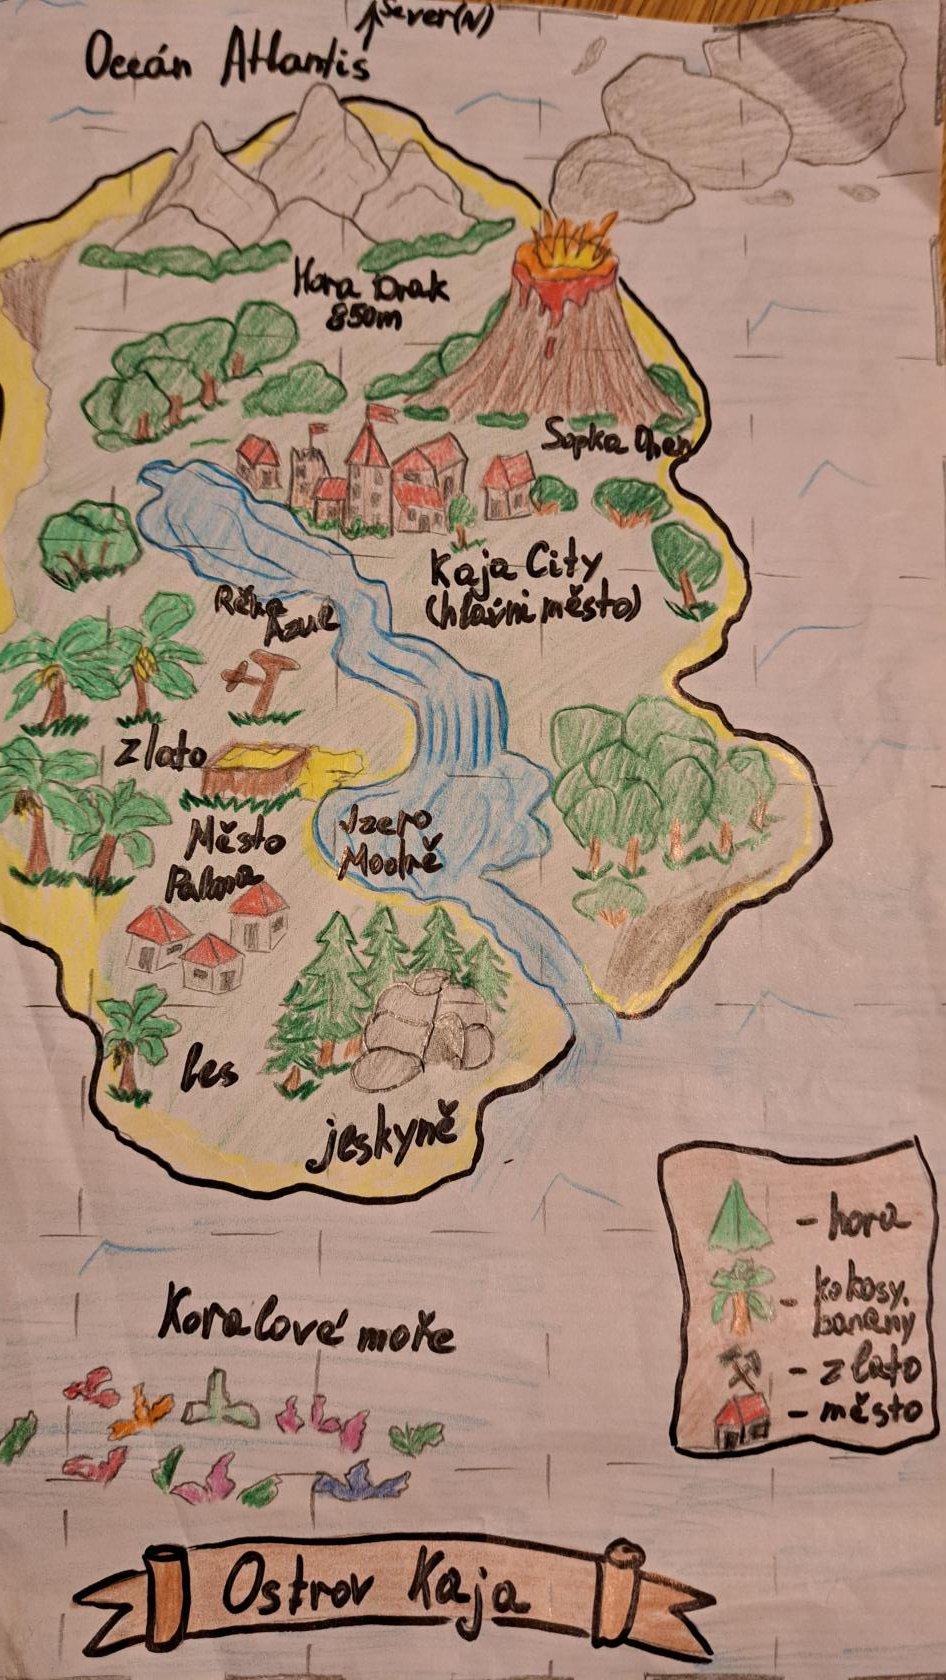 Sever(N)
Oceán Atlantis
Hora Drak
850m
Sopka Oheň
Kaja City
(hlavní město)
Řeka
Azul
Zlato
Jzero
Modré
Město
Palma
les
jeskyně
- hora
- kokosy,
banany
- zlato
- město
Koralové moře
Ostrov Kaja